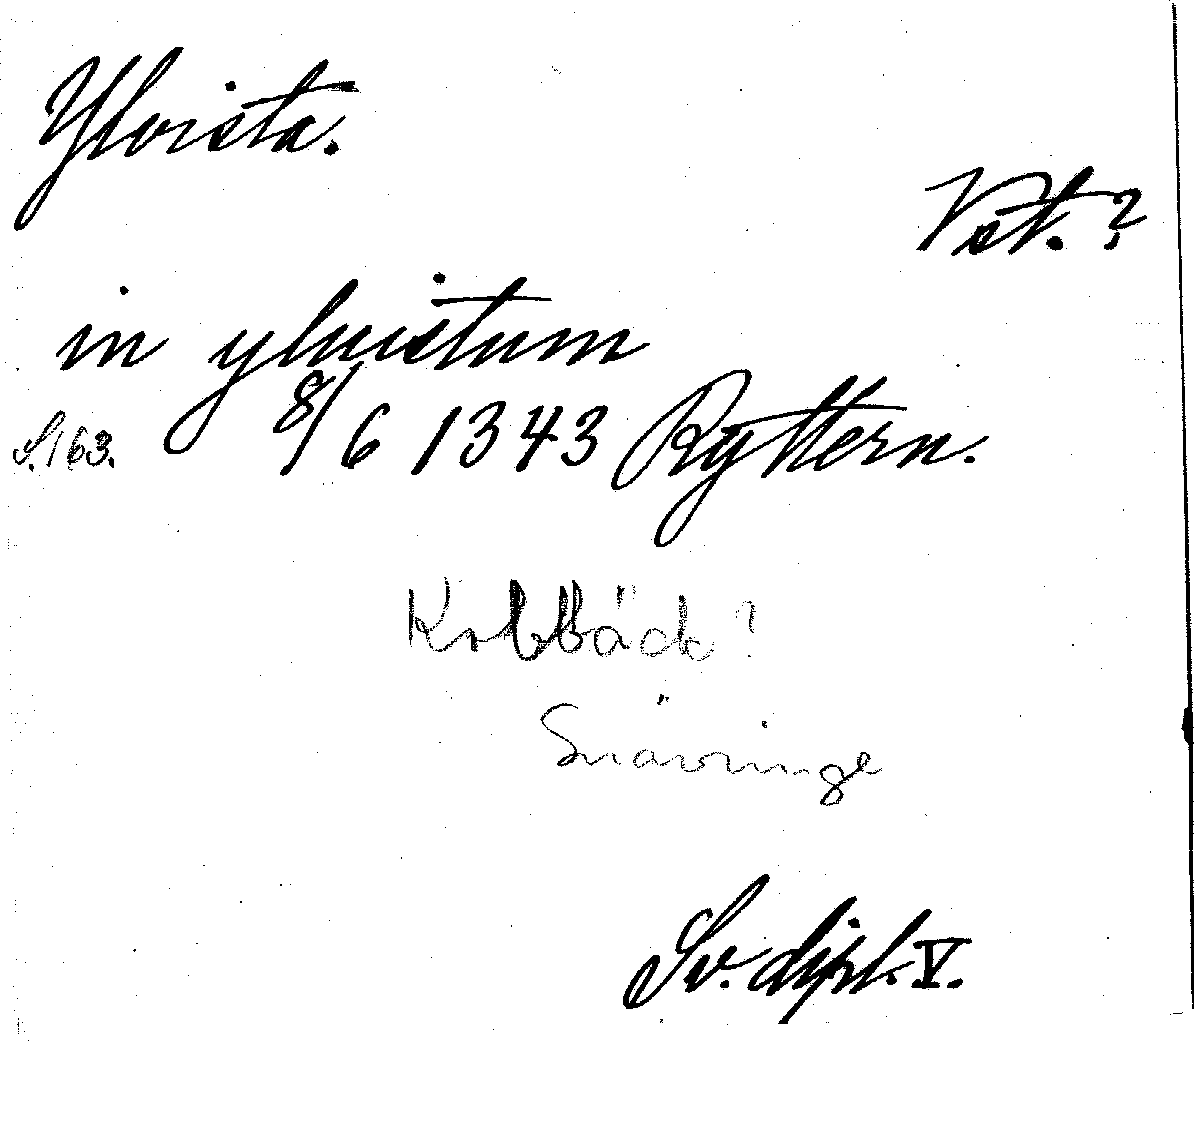 Ylvista.
Vst. ?
in yluistum
S. 163. 8/6 1343 Ryttern.
Kolbäck ?
Snävringe
Sv. dipl. V.